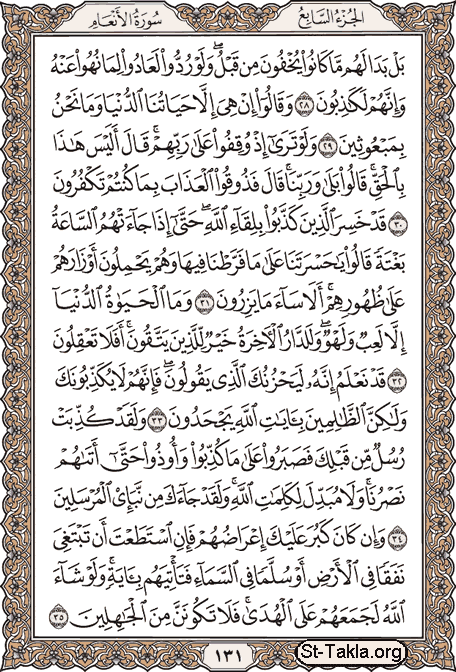 الجزء السابع سورة الأنعام
بَلْ بَدَا لَهُم مَّا كَانُوا۟ يُخْفُونَ مِن قَبْلُ ۖ وَلَوْ رُدُّوا۟ لَعَادُوا۟ لِمَا نُهُوا۟ عَنْهُ
وَإِنَّهُمْ لَكَـٰذِبُونَ ٢٨ وَقَالُوٓا۟ إِنْ هِىَ إِلَّا حَيَاتُنَا ٱلدُّنْيَا وَمَا نَحْنُ
بِمَبْعُوثِينَ ٢٩ وَلَوْ تَرَىٰٓ إِذْ وُقِفُوا۟ عَلَىٰ رَبِّهِمْ ۚ قَالَ أَلَيْسَ هَـٰذَا
بِٱلْحَقِّ ۚ قَالُوا۟ بَلَىٰ وَرَبِّنَا ۚ قَالَ فَذُوقُوا۟ ٱلْعَذَابَ بِمَا كُنتُمْ تَكْفُرُونَ
٣٠ قَدْ خَسِرَ ٱلَّذِينَ كَذَّبُوا۟ بِلِقَآءِ ٱللَّهِ ۖ حَتَّىٰٓ إِذَا جَآءَتْهُمُ ٱلسَّاعَةُ
بَغْتَةً قَالُوا۟ يَـٰحَسْرَتَنَا عَلَىٰ مَا فَرَّطْنَا فِيهَا وَهُمْ يَحْمِلُونَ أَوْزَارَهُمْ
عَلَىٰ ظُهُورِهِمْ ۚ أَلَا سَآءَ مَا يَزِرُونَ ٣١ وَمَا ٱلْحَيَوٰةُ ٱلدُّنْيَآ
إِلَّا لَعِبٌ وَلَهْوٌ ۖ وَلَلدَّارُ ٱلْـَٔاخِرَةُ خَيْرٌ لِّلَّذِينَ يَتَّقُونَ ۗ أَفَلَا تَعْقِلُونَ
٣٢ قَدْ نَعْلَمُ إِنَّهُۥ لَيَحْزُنُكَ ٱلَّذِى يَقُولُونَ ۖ فَإِنَّهُمْ لَا يُكَذِّبُونَكَ
وَلَـٰكِنَّ ٱلظَّـٰلِمِينَ بِـَٔايَـٰتِ ٱللَّهِ يَجْحَدُونَ ٣٣ وَلَقَدْ كُذِّبَتْ
رُسُلٌ مِّن قَبْلِكَ فَصَبَرُوا۟ عَلَىٰ مَا كُذِّبُوا۟ وَأُوذُوا۟ حَتَّىٰٓ أَتَىٰهُمْ
نَصْرُنَا ۚ وَلَا مُبَدِّلَ لِكَلِمَـٰتِ ٱللَّهِ ۚ وَلَقَدْ جَآءَكَ مِن نَّبَإِى۟ ٱلْمُرْسَلِينَ
٣٤ وَإِن كَانَ كَبُرَ عَلَيْكَ إِعْرَاضُهُمْ فَإِنِ ٱسْتَطَعْتَ أَن تَبْتَغِىَ
نَفَقًا فِى ٱلْأَرْضِ أَوْ سُلَّمًا فِى ٱلسَّمَآءِ فَتَأْتِيَهُم بِـَٔايَةٍ ۚ وَلَوْ شَآءَ
ٱللَّهُ لَجَمَعَهُمْ عَلَى ٱلْهُدَىٰ ۚ فَلَا تَكُونَنَّ مِنَ ٱلْجَـٰهِلِينَ ٣٥
١٣١
St-Takla.org